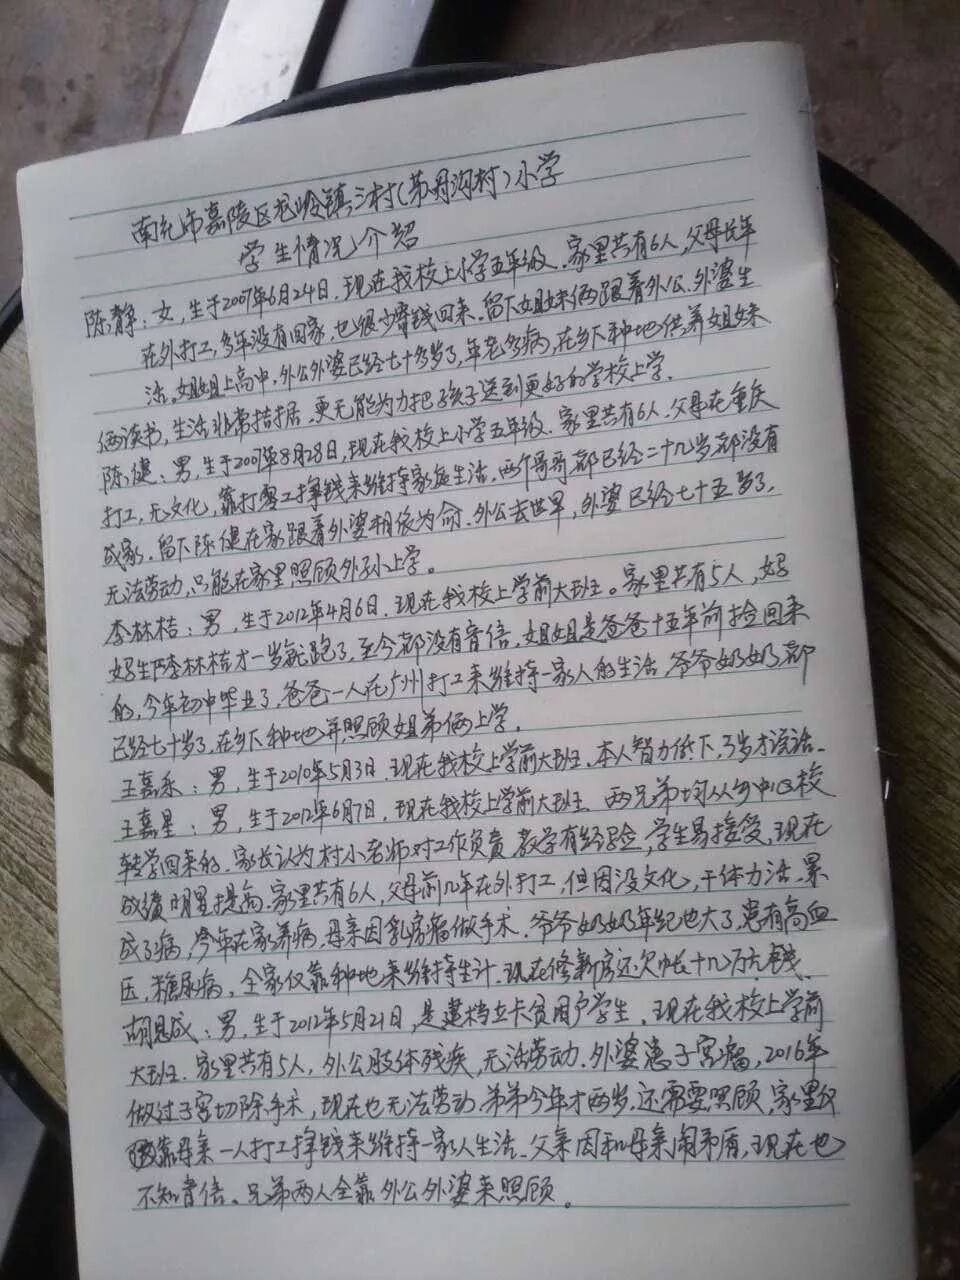 南充市嘉陵区龙岭镇三村(第丹沟村)小学
学生情况介绍
陈静：女，生于2007年6月24日，现在我校上小学五年级。家里共有6人，父母长年
在外打工，多年没有回家，也很少寄钱回来。留下姐妹俩跟着外公、外婆生
活。姐姐上高中，外公外婆已经七十多岁了，年老多病，在乡下种地供养姐妹
俩读书，生活非常拮据，更无能为力把孩子送到更好的学校上学。
陈健：男，生于2007年8月28日，现在我校上小学五年级。家里共有6人，父母在重庆
打工，无文化，靠打零工挣钱来维持家庭生活，两个哥哥都已经二十几岁都没有
成家。留下陈健在家跟着外婆相依为命，外公去世早，外婆已经七十五岁了，
无法劳动，只能在家里照顾外孙上学。
李林桔：男，生于2012年4月6日，现在我校上学前大班。家里共有5人，妈
妈生下李林桔才一岁就跑了，至今都没有音信，姐姐是爸爸十五年前捡回来
的，今年初中毕业了，爸爸一人在广州打工来维持一家人的生活，爷爷奶奶都
已经七十岁了，在乡下种地并照顾姐弟俩上学。
王嘉乐：男，生于2010年5月3日，现在我校上学前大班，本人智力低下，3岁才说话。
王嘉星：男，生于2012年6月7日，现在我校上学前大班，两兄弟均从乡中心校
转学回来的，家长认为村小老师对工作负责，教学有经验，学生易接受，现在
成绩明显提高。家里共有6人，父母前几年在外打工，但因没文化，干体力活，累
成了病，今年在家养病，母亲因乳房瘤做手术，爷爷奶奶年纪也大了，患有高血
压，糖尿病，全家仅靠种地来维持生计，现在修新房还欠帐十几万元钱、
胡思成：男，生于2012年5月21日，是建档立卡贫困户学生，现在我校上学前
大班。家里共有5人，外公肢体残疾，无法劳动，外婆患子宫瘤，2016年
做过子宫切除手术，现在也无法劳动，弟弟今年才两岁，还需要照顾，家里仅
靠母亲一人打工挣钱来维持一家人生活。父亲因和母亲闹矛盾，现在也
不知音信。兄弟两人全靠外公外婆来照顾。